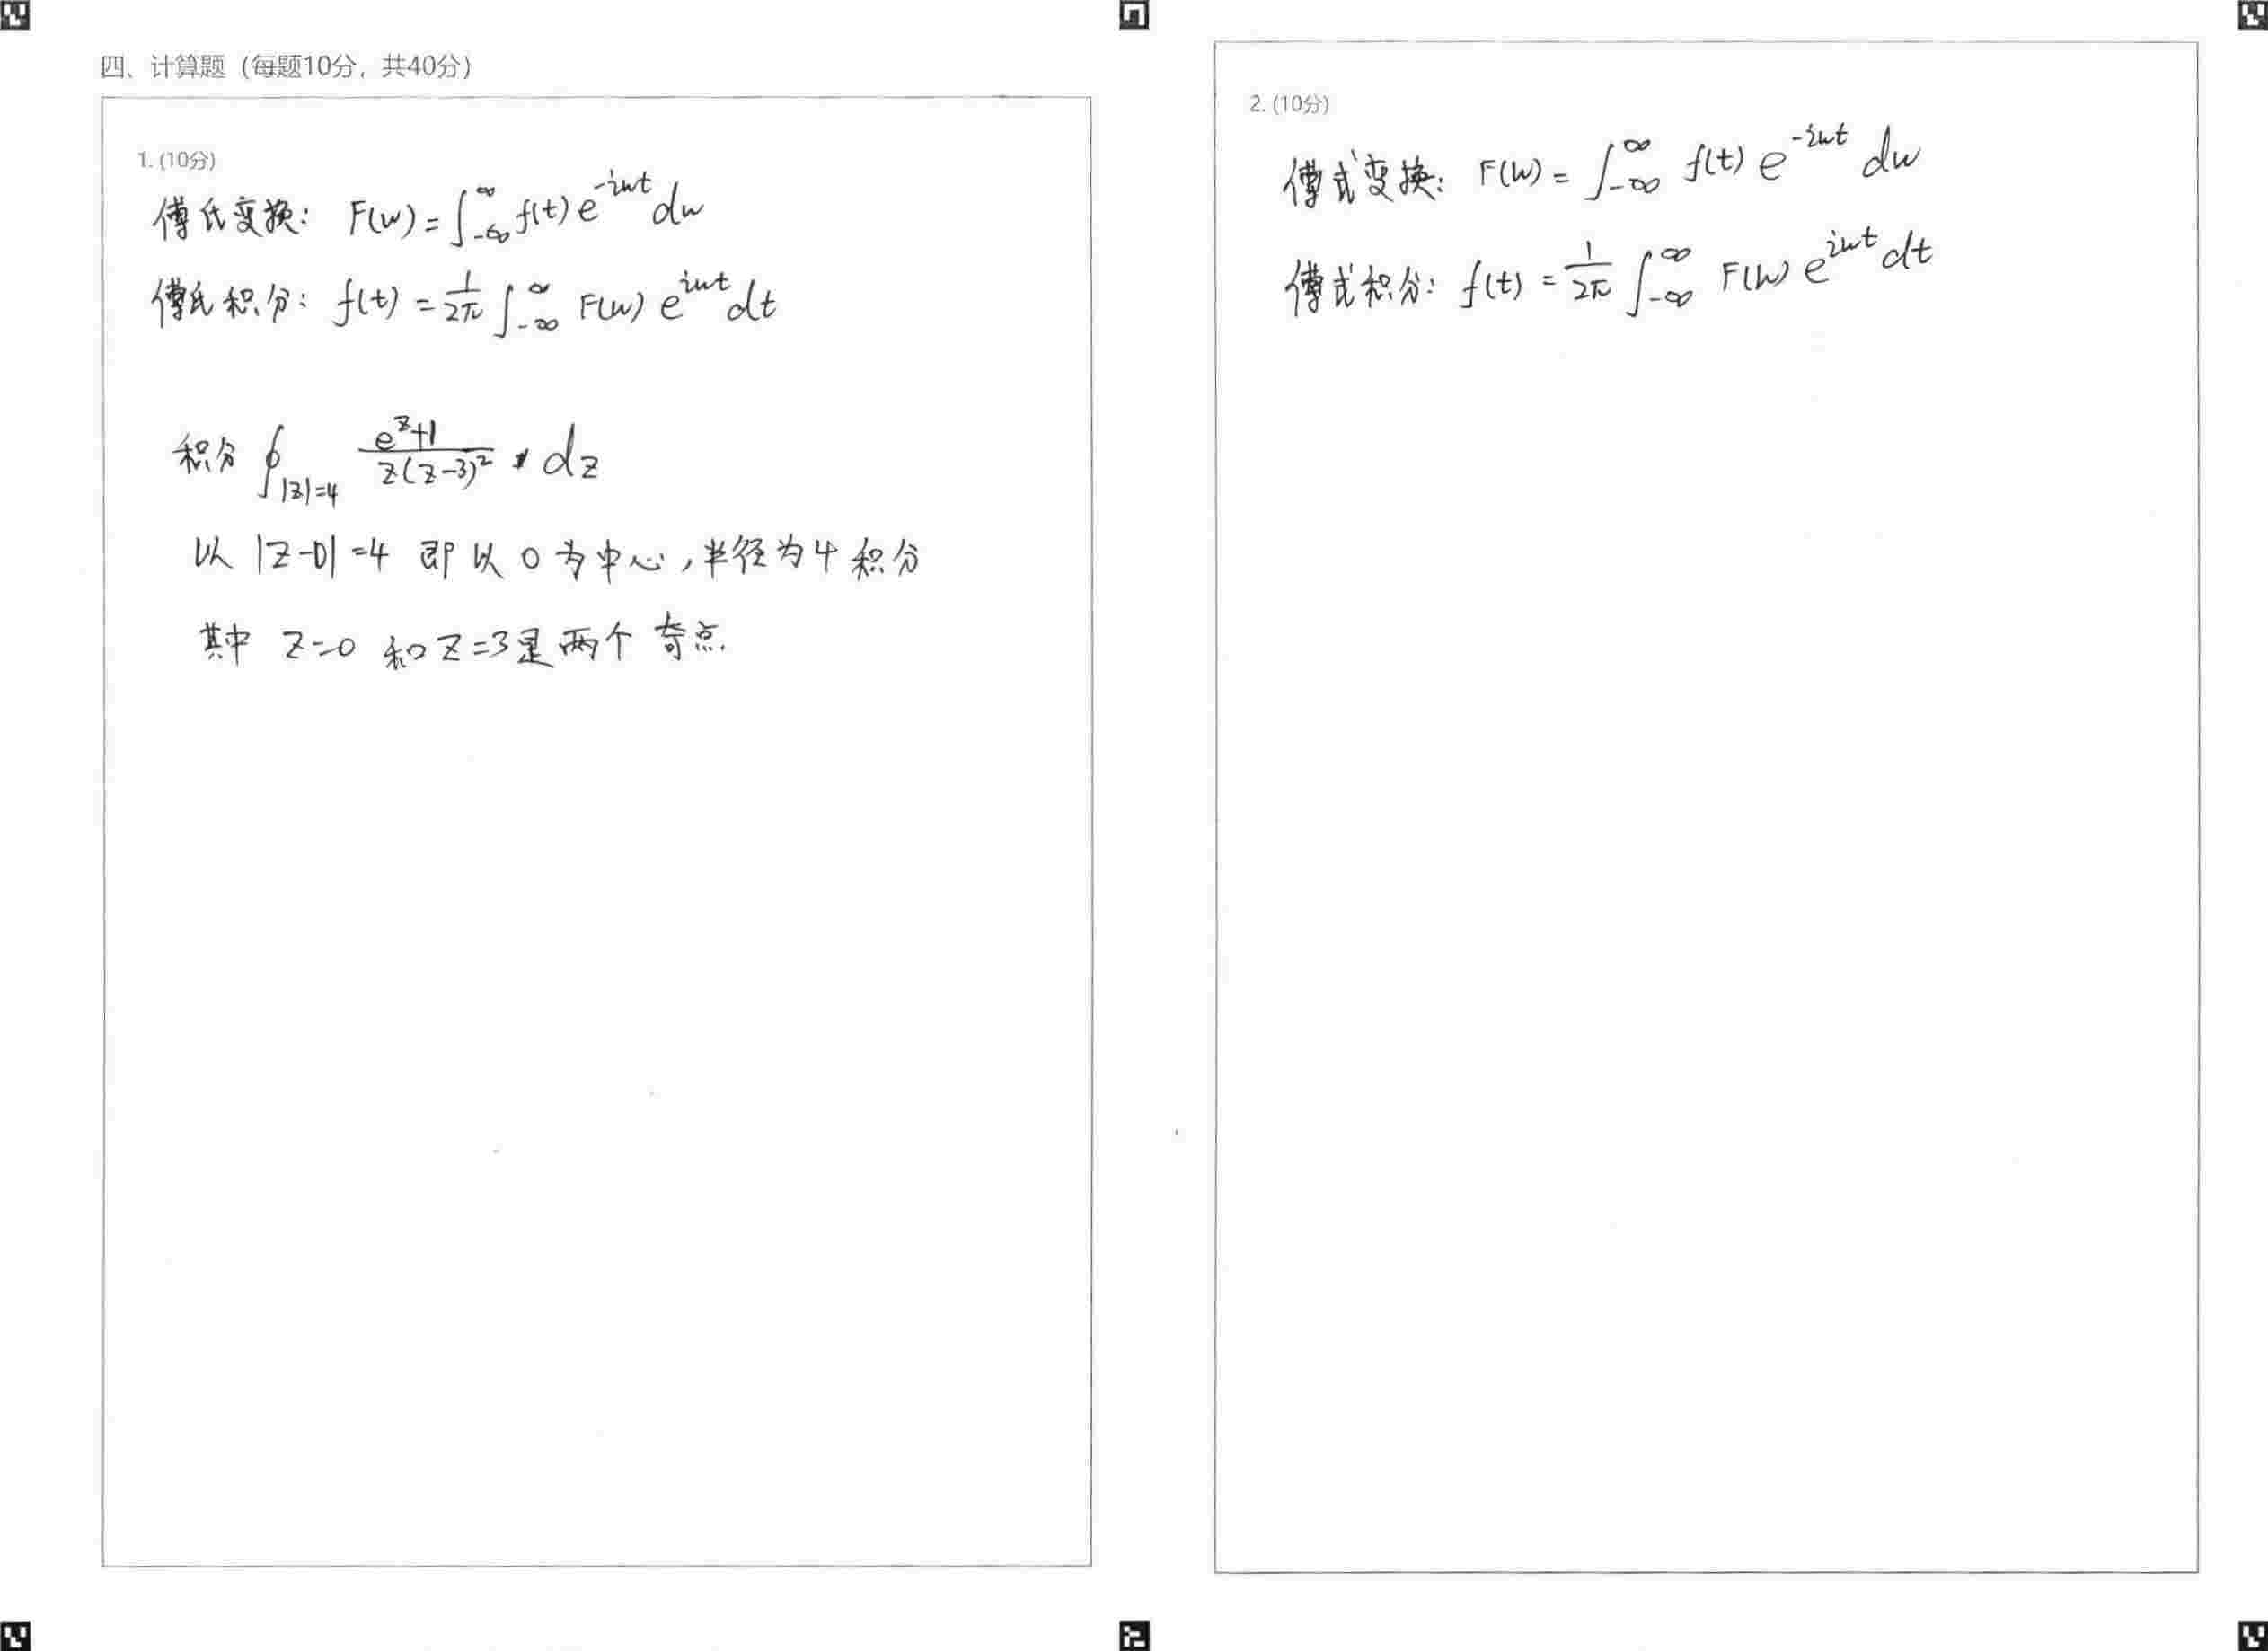 四、计算题（每题10分，共40分）
1. (10分)
傅氏变换： F(w) = ∫_{-∞}^{∞} f(t) e^{-iwt} dw
傅氏积分： f(t) = \frac{1}{2π} ∫_{-∞}^{∞} F(w) e^{iwt} dt
积分 ∮_{|z|=4} \frac{e^z+1}{z(z-3)^2} dz
以 |z-0|=4 即以 0 为中心，半径为4积分
其中 z=0 和 z=3是两个奇点.
2. (10分)
傅式变换： F(w) = ∫_{-∞}^{∞} f(t) e^{-iwt} dw
傅式积分： f(t) = \frac{1}{2π} ∫_{-∞}^{∞} F(w) e^{iwt} dt